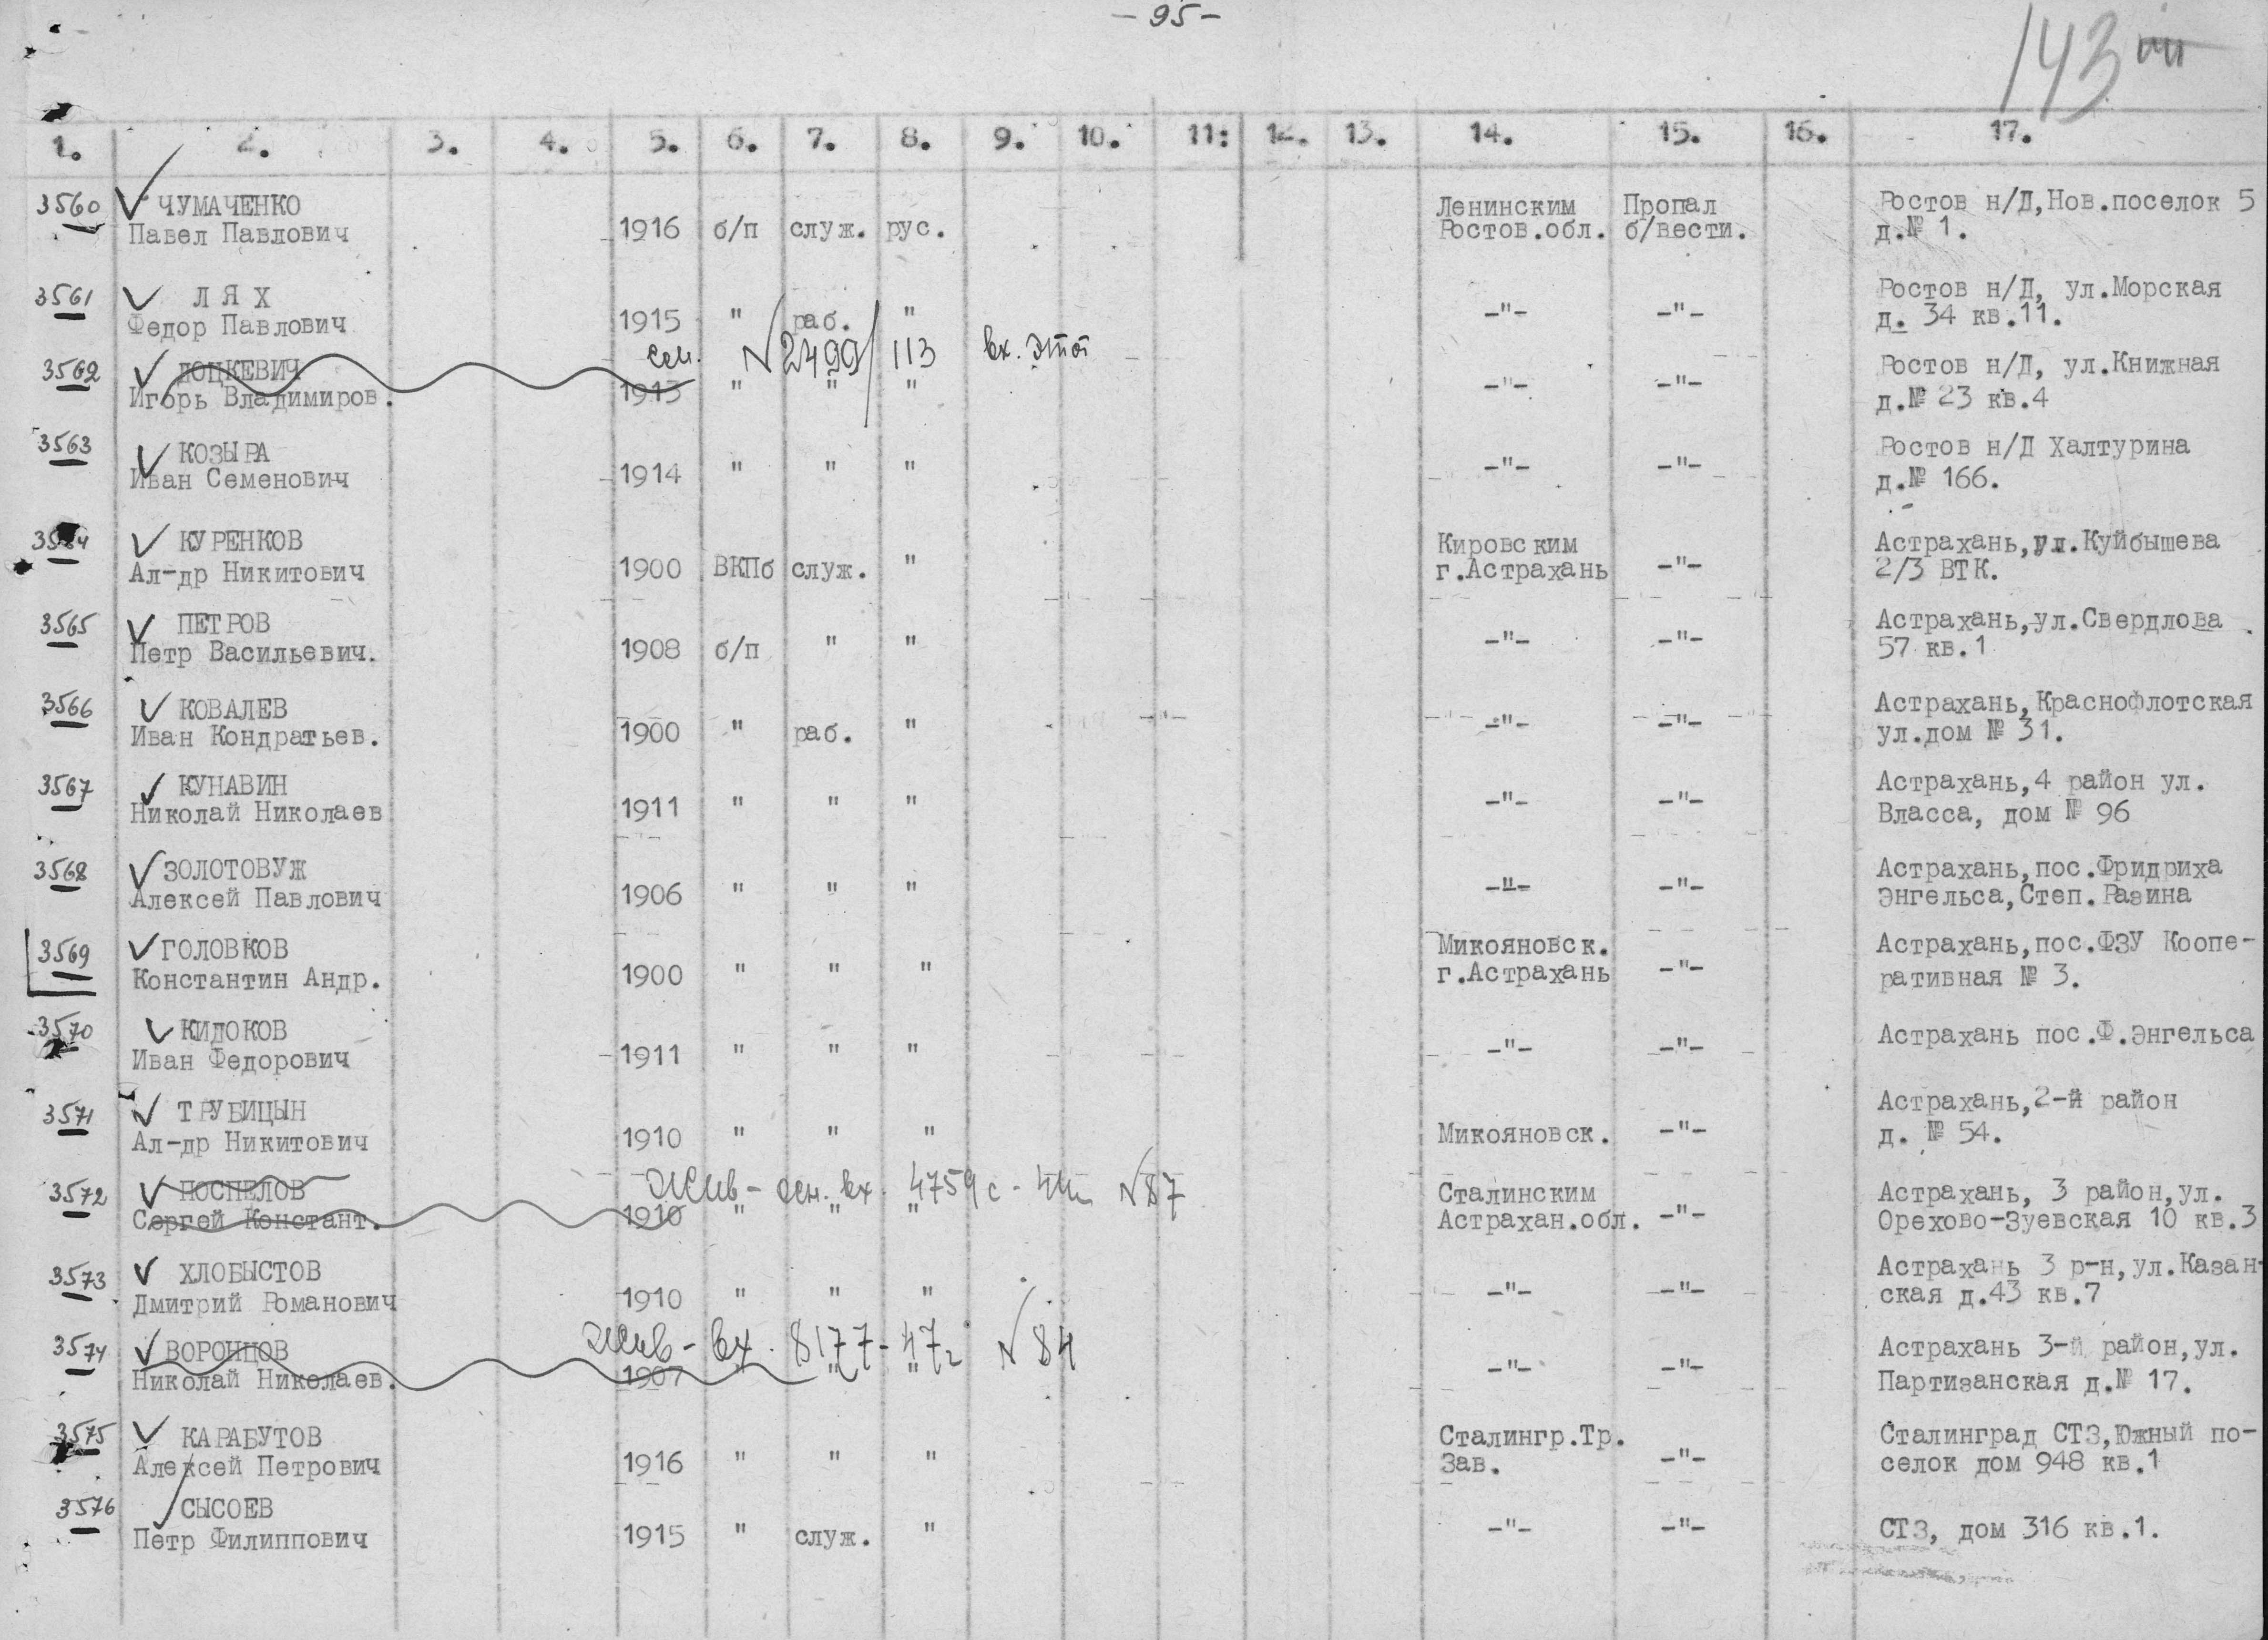 - 95 -
143
1. 2. 3. 4. 5. 6. 7. 8. 9. 10. 11: 12. 13. 14. 15. 16. 17.
3560 ЧУМАЧЕНКО Ленинским Пропал Ростов н/Д,Нов.поселок 5
Павел Павлович 1916 б/п служ. рус. Ростов.обл. б/вести. д.№ 1.
3561 Л Я Х Ростов н/Д, ул.Морская
Федор Павлович 1915 " раб. " -"- -"- д. 34 кв.11.
№2499/113 вх.
3562 ЛОЦКЕВИЧ Ростов н/Д, ул.Книжная
Игорь Владимиров. 1913 " " " -"- -"- д.№ 23 кв.4
3563 КОЗЫРА Ростов н/Д Халтурина
Иван Семенович 1914 " " " -"- -"- д.№ 166.
3564 КУРЕНКОВ Кировским Астрахань,ул.Куйбышева
Ал-др Никитович 1900 ВКПб служ. " г.Астрахань -"- 2/3 ВТК.
3565 ПЕТРОВ Астрахань,ул.Свердлова
Петр Васильевич. 1908 б/п " " -"- -"- 57 кв.1
3566 КОВАЛЕВ Астрахань,Краснофлотская
Иван Кондратьев. 1900 " раб. " -"- -"- ул.дом № 31.
3567 КУНАВИН Астрахань,4 район ул.
Николай Николаев 1911 " " " -"- -"- Власса, дом № 96
3568 ЗОЛОТОВУЖ Астрахань,пос.Фридриха
Алексей Павлович 1906 " " " -"- -"- Энгельса,Степ.Разина
3569 ГОЛОВКОВ Микояновск. Астрахань,пос.ФЗУ Коопе-
Константин Андр. 1900 " " " г.Астрахань -"- ративная № 3.
3570 КИДОКОВ Астрахань пос.Ф.Энгельса
Иван Федорович 1911 " " " -"- -"-
3571 ТРУБИЦЫН Астрахань,2-й район
Ал-др Никитович 1910 " " " Микояновск. -"- д. № 54.
жив - вх. 4759с- №87
3572 ПОСПЕЛОВ Сталинским Астрахань, 3 район,ул.
Сергей Констант. 1910 " " " Астрахан.обл. -"- Орехово-Зуевская 10 кв.3
3573 ХЛОБЫСТОВ Астрахань 3 р-н,ул.Казан-
Дмитрий Романович 1910 " " " -"- -"- ская д.43 кв.7
жив - вх. 8177-47г №84
3574 ВОРОНЦОВ Астрахань 3-й район,ул.
Николай Николаев. 1907 " " " -"- -"- Партизанская д.№ 17.
3575 КАРАБУТОВ Сталингр.Тр. Сталинград СТЗ,Южный по-
Алексей Петрович 1916 " " " Зав. -"- селок дом 948 кв.1
3576 СЫСОЕВ
Петр Филиппович 1915 " служ. " -"- -"- СТЗ, дом 316 кв.1.